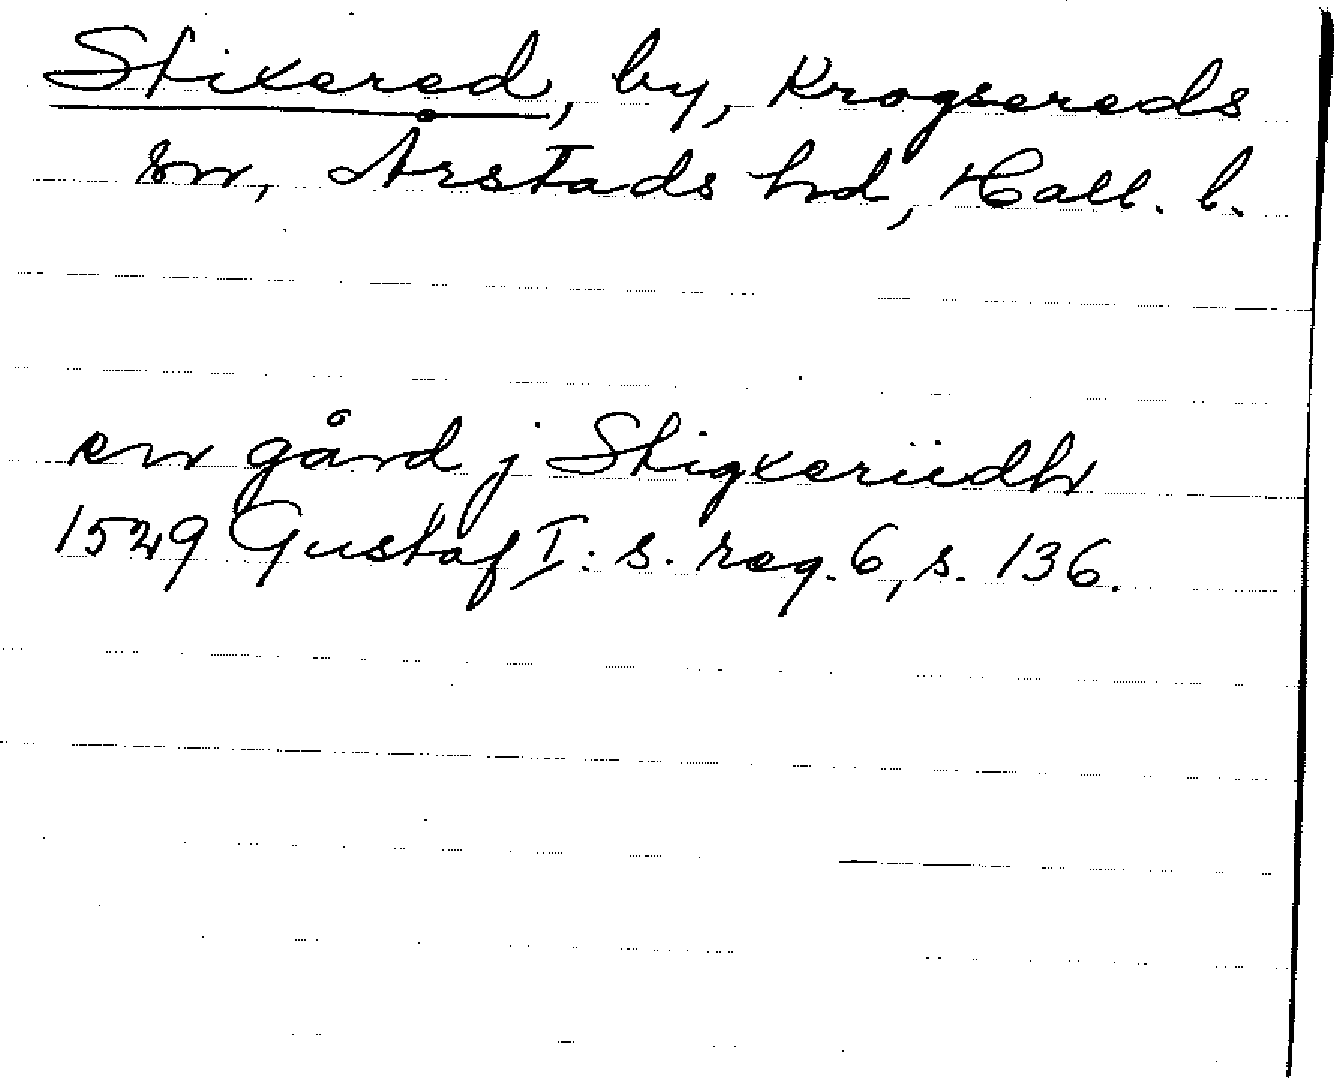 Stixered, by, Krogsereds
sn, Årstads hd, Hall. l.
en gård j Stigxeriidh
1529 Gustaf I: s. reg. 6, s. 136.